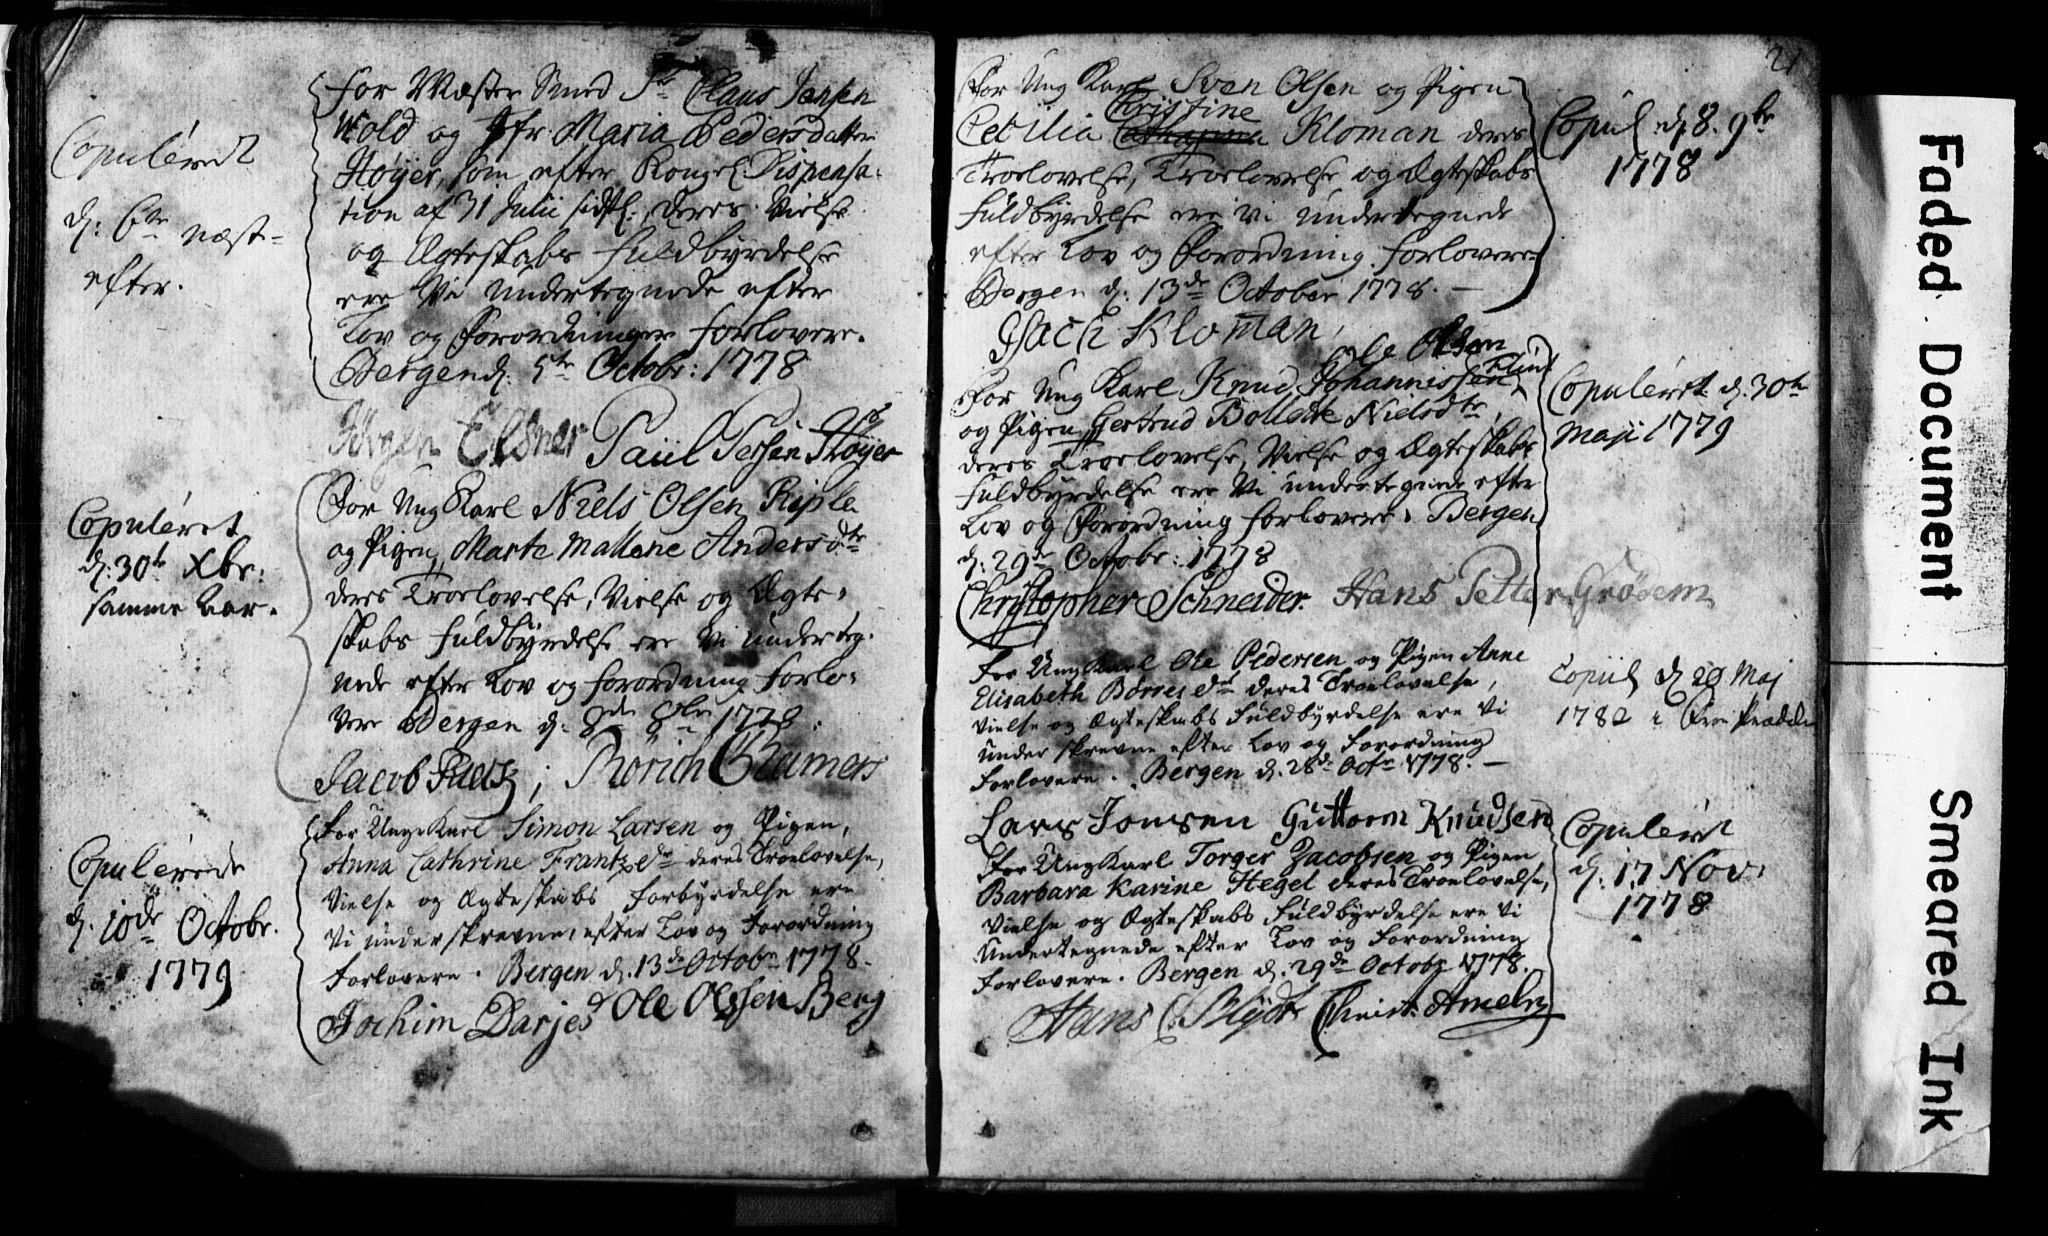 Copuleret
d: 6te næst-
efter.
For Mester Smed Sr Claus Jensen
Wold og Jfr. Maria Pedersdatter
Høyer, som efter Kongel. Dispensa-
tion af 31 Julii sidstl: deres Vielse
og Ægteskabs Fuldbyrdelse
ere Vi undertegnede efter
Lov og Forordninger Forlovere.
Bergen d. 5te Octobr: 1778
Jørgen Elsner Paul Jersen Høyer
Copuleret
d: 30te Xbr:
samme Aar.
For Ung Karl Niels Olsen Riple
og Pigen, Marte Mallene Andersdtr
deres Troelovelse, Vielse og Ægte-
skabs Fuldbyrdelse ere Vi underteg-
nede efter Lov og Forordning Forlo-
vere Bergen d: 8de 8br 1778:
Jacob ; Rørich Cramers
Copulerede
d. 10de Octobr.
1779
For Unge Karl Simon Larsen og Pigen,
Anna Cathrine Frantzdr deres Troelovelse,
Vielse og Ægteskabs Forbyrdelse ere
Vi underskrevne, efter Lov og Forordning
Forlovere. Bergen d. 13de Octobr 1778.
Jochim Darjes Ole Olssen Berg
21
For Ung Karl Sven Olsen og Pigen
Christine
Cecilia Catharina Kloman deres
Troelovelse, Troelovelse og Ægteskabs
Fuldbyrdelse ere Vi undertegnede
efter Lov og Forordning Forlovere
Bergen d: 13de October 1778. —
Isach Kloman, Ole Olsen
Copul d 8. 9br
1778
Flint
For Ung Karl Knud Johannissen
og Pigen Gertrud Bollette Nielsdtr,
deres Troelovelse, Vielse og Ægteskabs
Fuldbyrdelse ere Vi undertegnede efter
Lov og Forordning Forlovere. Bergen
d: 29de Octobr: 1778
Christopher Schneider. Hans Petter Grødem
Copuleret d. 30te
Maji 1779
For Ung Karl Ole Pedersen og Pigen Anne
Elisabeth Børresdtr deres Troelovelse,
Vielse og Ægteskabs Fuldbyrdelse ere Vi
underskrevne efter Lov og Forordning
Forlovere. Bergen d. 28de Octr 1778. —
Lars Jonsen Guttorm Knudsen
Copul d 20 Maj
1782
For Ung Karl Torger Jacobsen og Pigen
Barbara Karine Hegel deres Troelovelse,
Vielse og Ægteskabs Fuldbyrdelse ere Vi
Undertegnede efter Lov og Forordning
Forlovere. Bergen d. 29de Octobr 1778.
Hans C. Blydt Christ: Ameln
Copuleret
d: 17 Nov:
1778
Faded Document
Smeared Ink